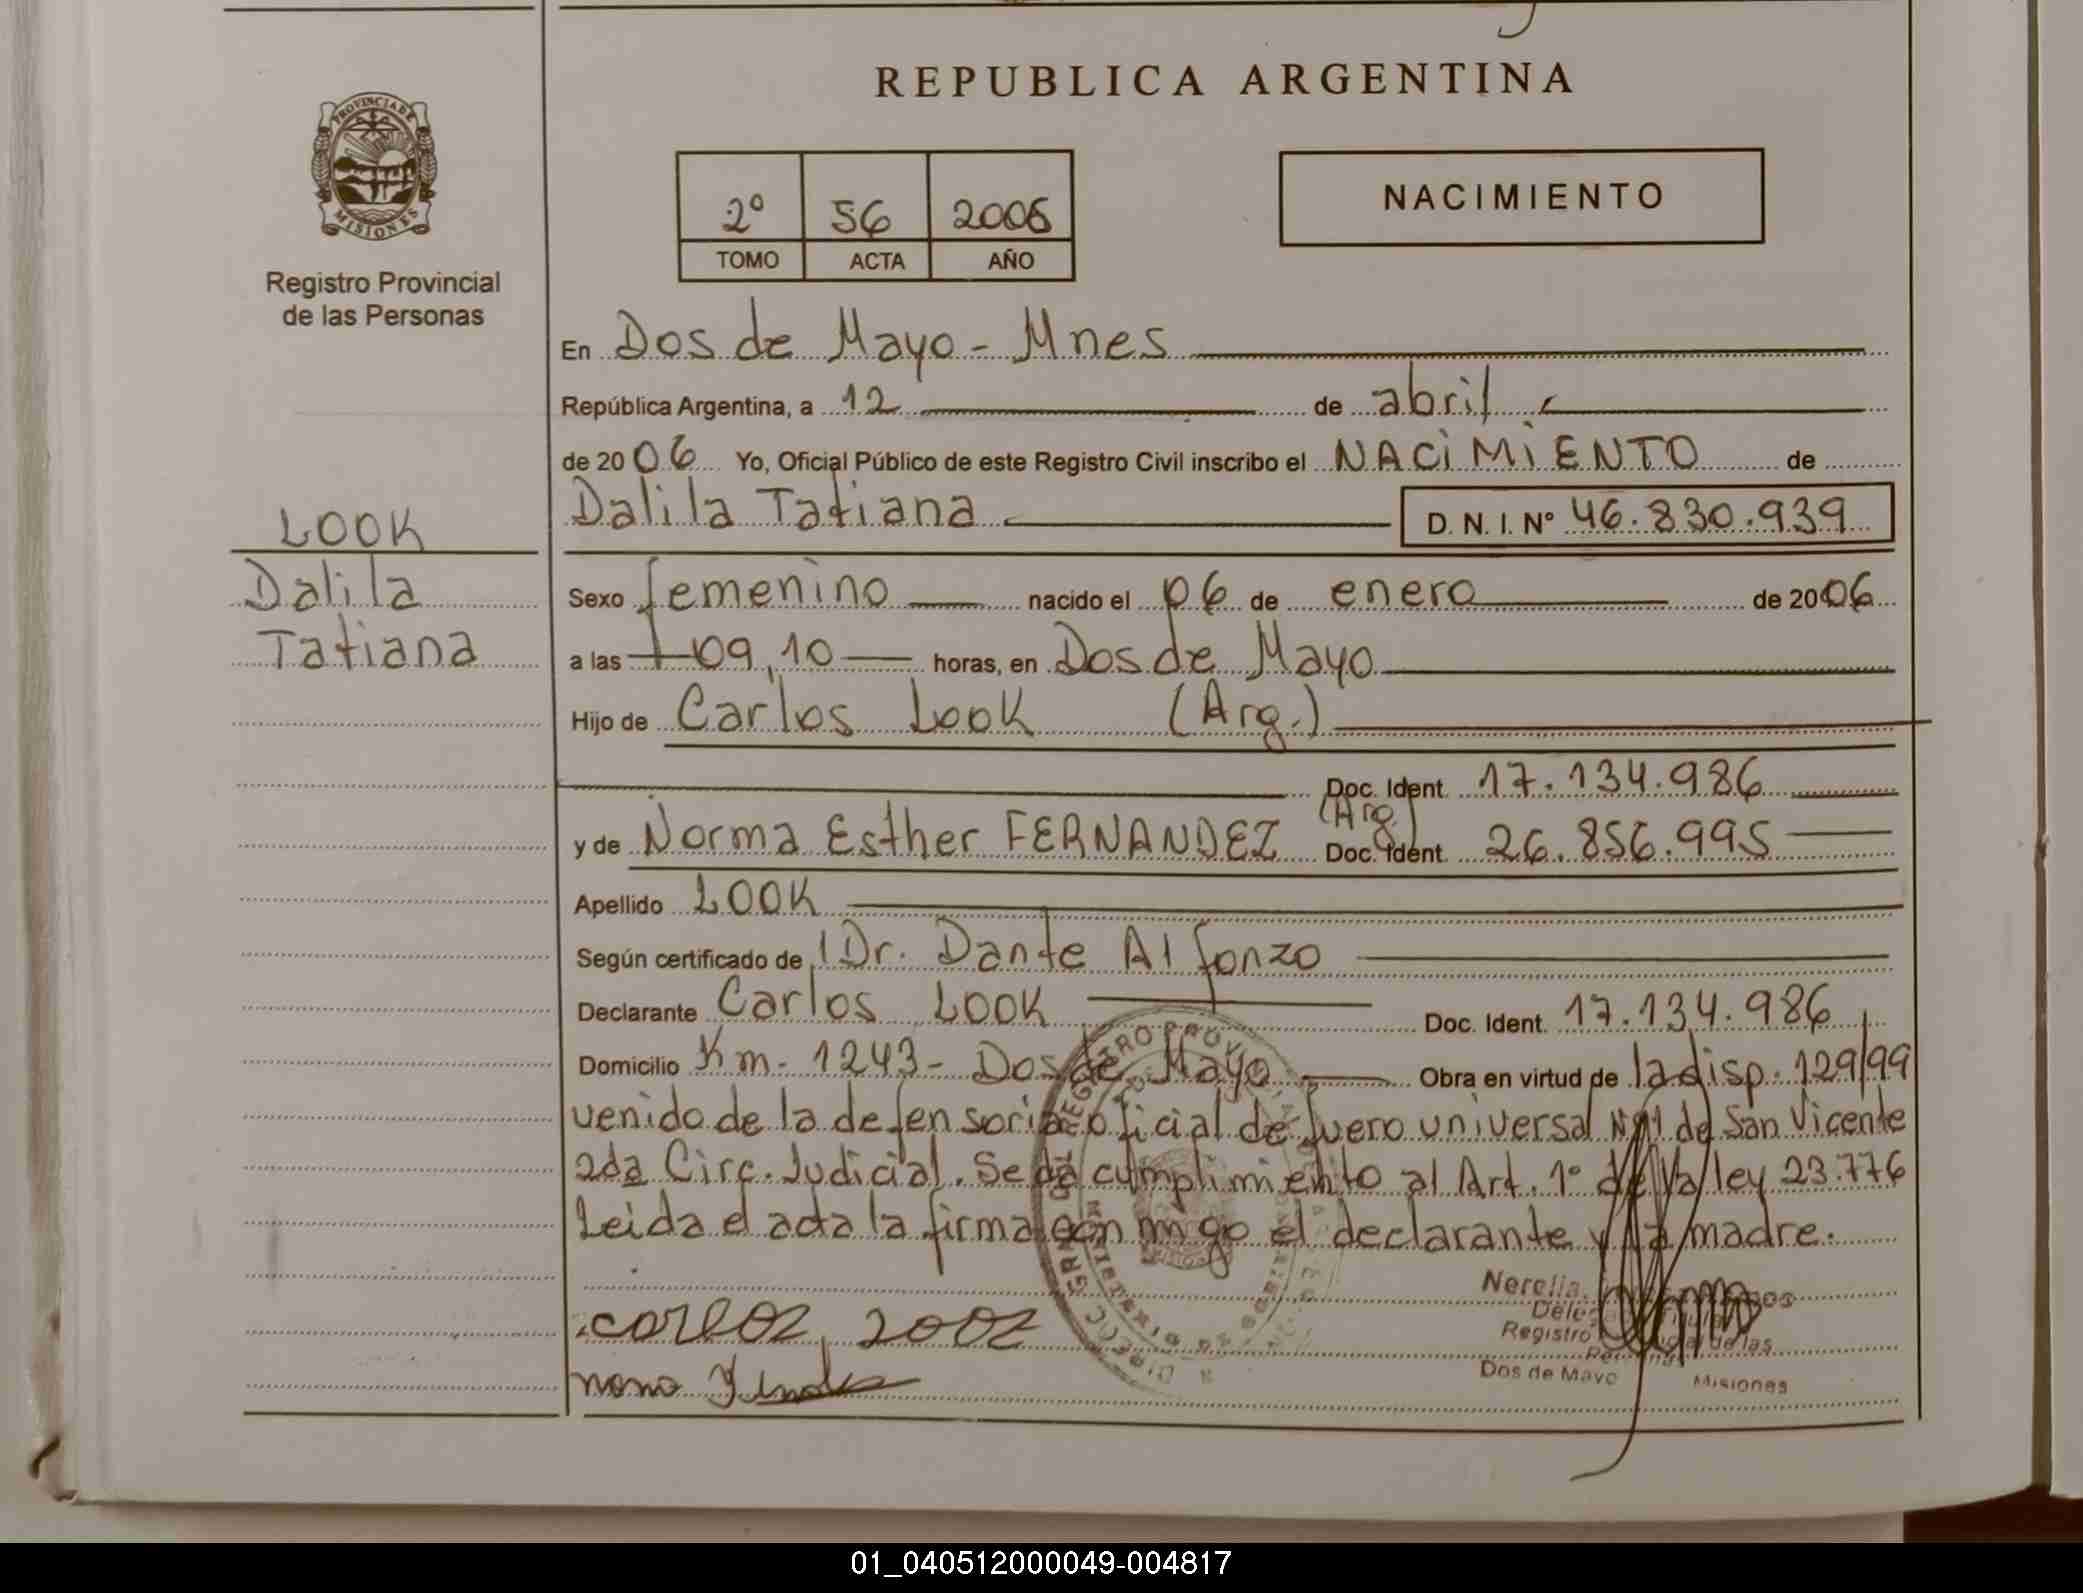 REPUBLICA ARGENTINA
PROVINCIA DE
MISIONES
Registro Provincial
de las Personas
2º 56 2006
TOMO ACTA AÑO
NACIMIENTO
En Dos de Mayo - Mnes
República Argentina, a 12 de abril
de 2006 Yo, Oficial Público de este Registro Civil inscribo el NACIMIENTO de
Dalila Tatiana D. N. I. Nº 46.830.939
LOOK
Dalila
Tatiana
Sexo femenino nacido el 06 de enero de 2006
a las 09,10 horas, en Dos de Mayo
Hijo de Carlos Look (Arg.)
Doc. Ident. 17.134.986
y de Norma Esther FERNANDEZ (Arg.) Doc. Ident. 26.856.995
Apellido LOOK
Según certificado de Dr. Dante Alfonzo
Declarante Carlos LOOK Doc. Ident. 17.134.986
Domicilio Km - 1243 - Dos de Mayo Obra en virtud de la disp. 129/99
venido de la defensoria oficial de fuero universal Nº1 de San Vicente
2da Circ. Judicial. Se da cumplimiento al Art. 1º de la ley 23.776
Leida el acta la firma con migo el declarante y la madre.
Registro
Dos de Mayo Misiones
01_040512000049-004817